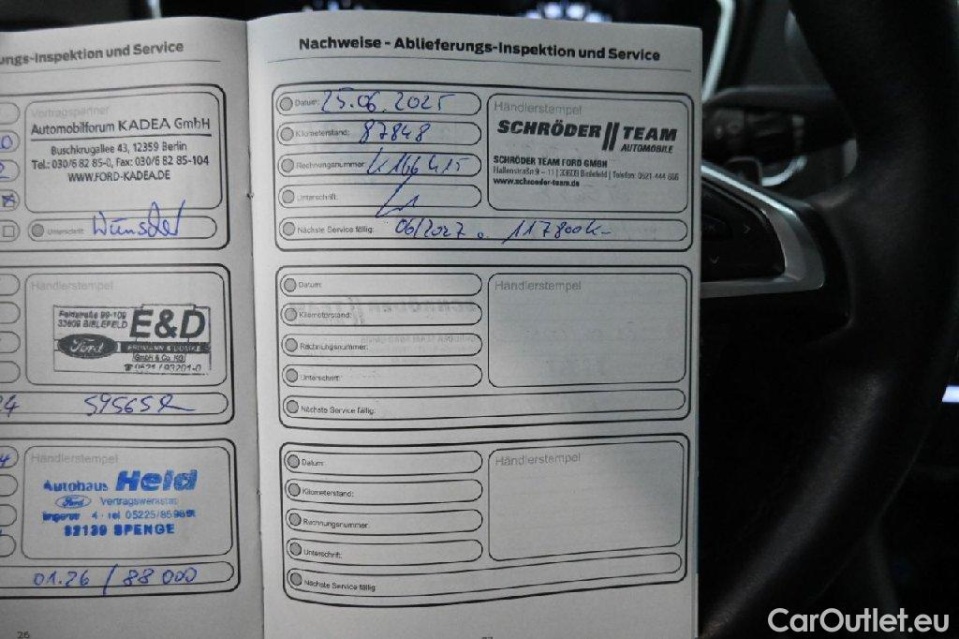 ungs-Inspektion und Service
Vertragspartner
Automobilforum KADEA GmbH
Buschkrugallee 43, 12359 Berlin
Tel.: 030/6 82 85-0, Fax: 030/6 82 85-104
WWW.FORD-KADEA.DE
Unterschrift:
Händlerstempel
33609 BIELEFELD
E&D
Ford
GmbH & Co. KG
☎ 0521/93201-0
24
Händlerstempel
Autohaus Held
Ford Vertragswerkstatt
4 · Tel 05225/
32139 SPENGE
01.26 / 88 000
26
Nachweise - Ablieferungs-Inspektion und Service
Datum: 25.06.2025
Kilometerstand: 87848
Rechnungsnummer:
Unterschrift:
Nächste Service fällig: 06/2027 o. 117800k
Händlerstempel
SCHRÖDER TEAM
AUTOMOBILE
SCHRÖDER TEAM FORD GMBH
Hallenstraße 9 – 11 | 33609 Bielefeld | Telefon: 0521 444 666
www.schroeder-team.de
Datum:
Kilometerstand:
Rechnungsnummer:
Unterschrift:
Nächste Service fällig:
Händlerstempel
Datum:
Kilometerstand:
Rechnungsnummer:
Unterschrift:
Nächste Service fällig:
Händlerstempel
CarOutlet.eu